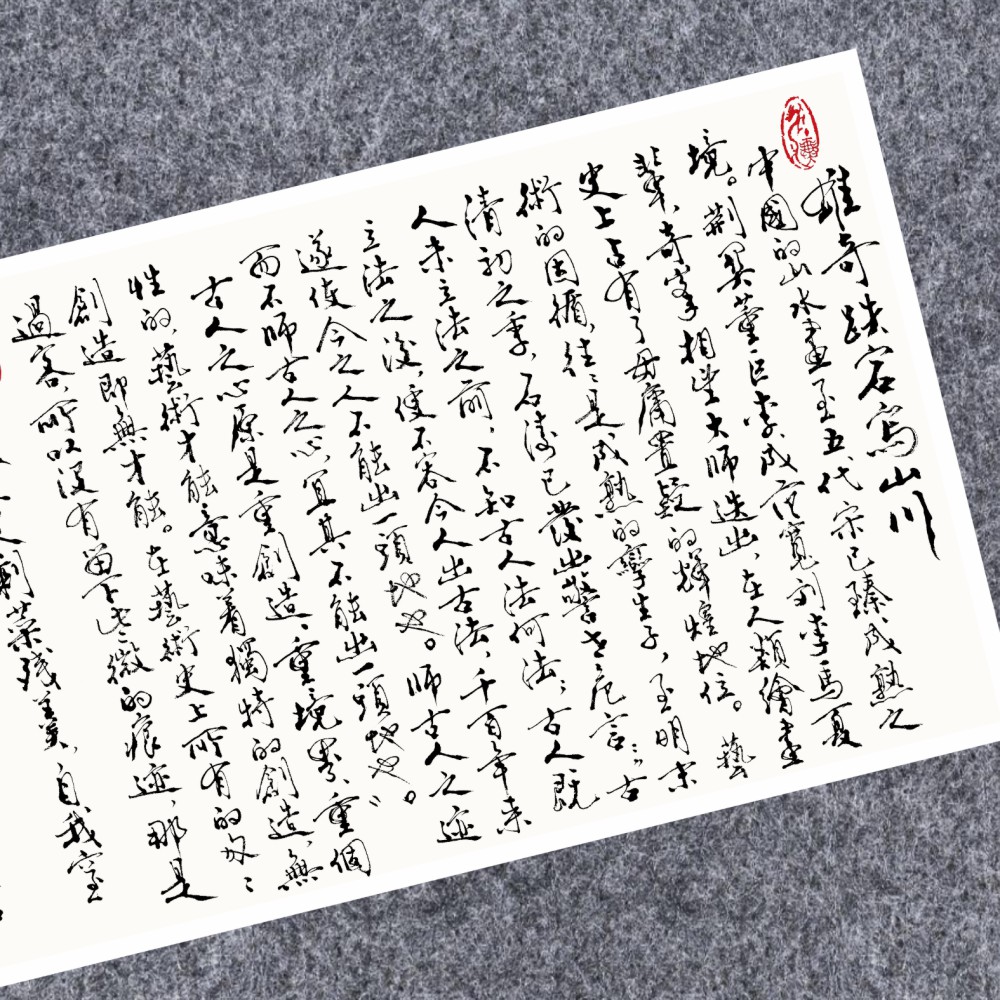 雄奇跌宕寫山川
中國的山水畫至五代宋已臻成熟之
境。荆關董巨李成范寬劉李馬夏
輩,奇峯相望大師迭出,在人類繪畫
史上占有了毋庸置疑的輝煌地位。藝
術的因循,往往是成熟的孿生子,至明末
清初之季,石濤已發出警世危言:古
人未立法之前,不知古人法何法;古人既
立法之後,便不容今人出古法,千百年來
遂使今之人不能出一頭地也。師古人之迹
而不師古人之心,宜其不能出一頭地也。
古人之心原是重創造、重境界、重個
性的,藝術才能意味着獨特的創造,無
創造即無才能。在藝術史上所有的
過客,所以沒有留下些微的痕迹,那是
剩菜殘羹,自我窒